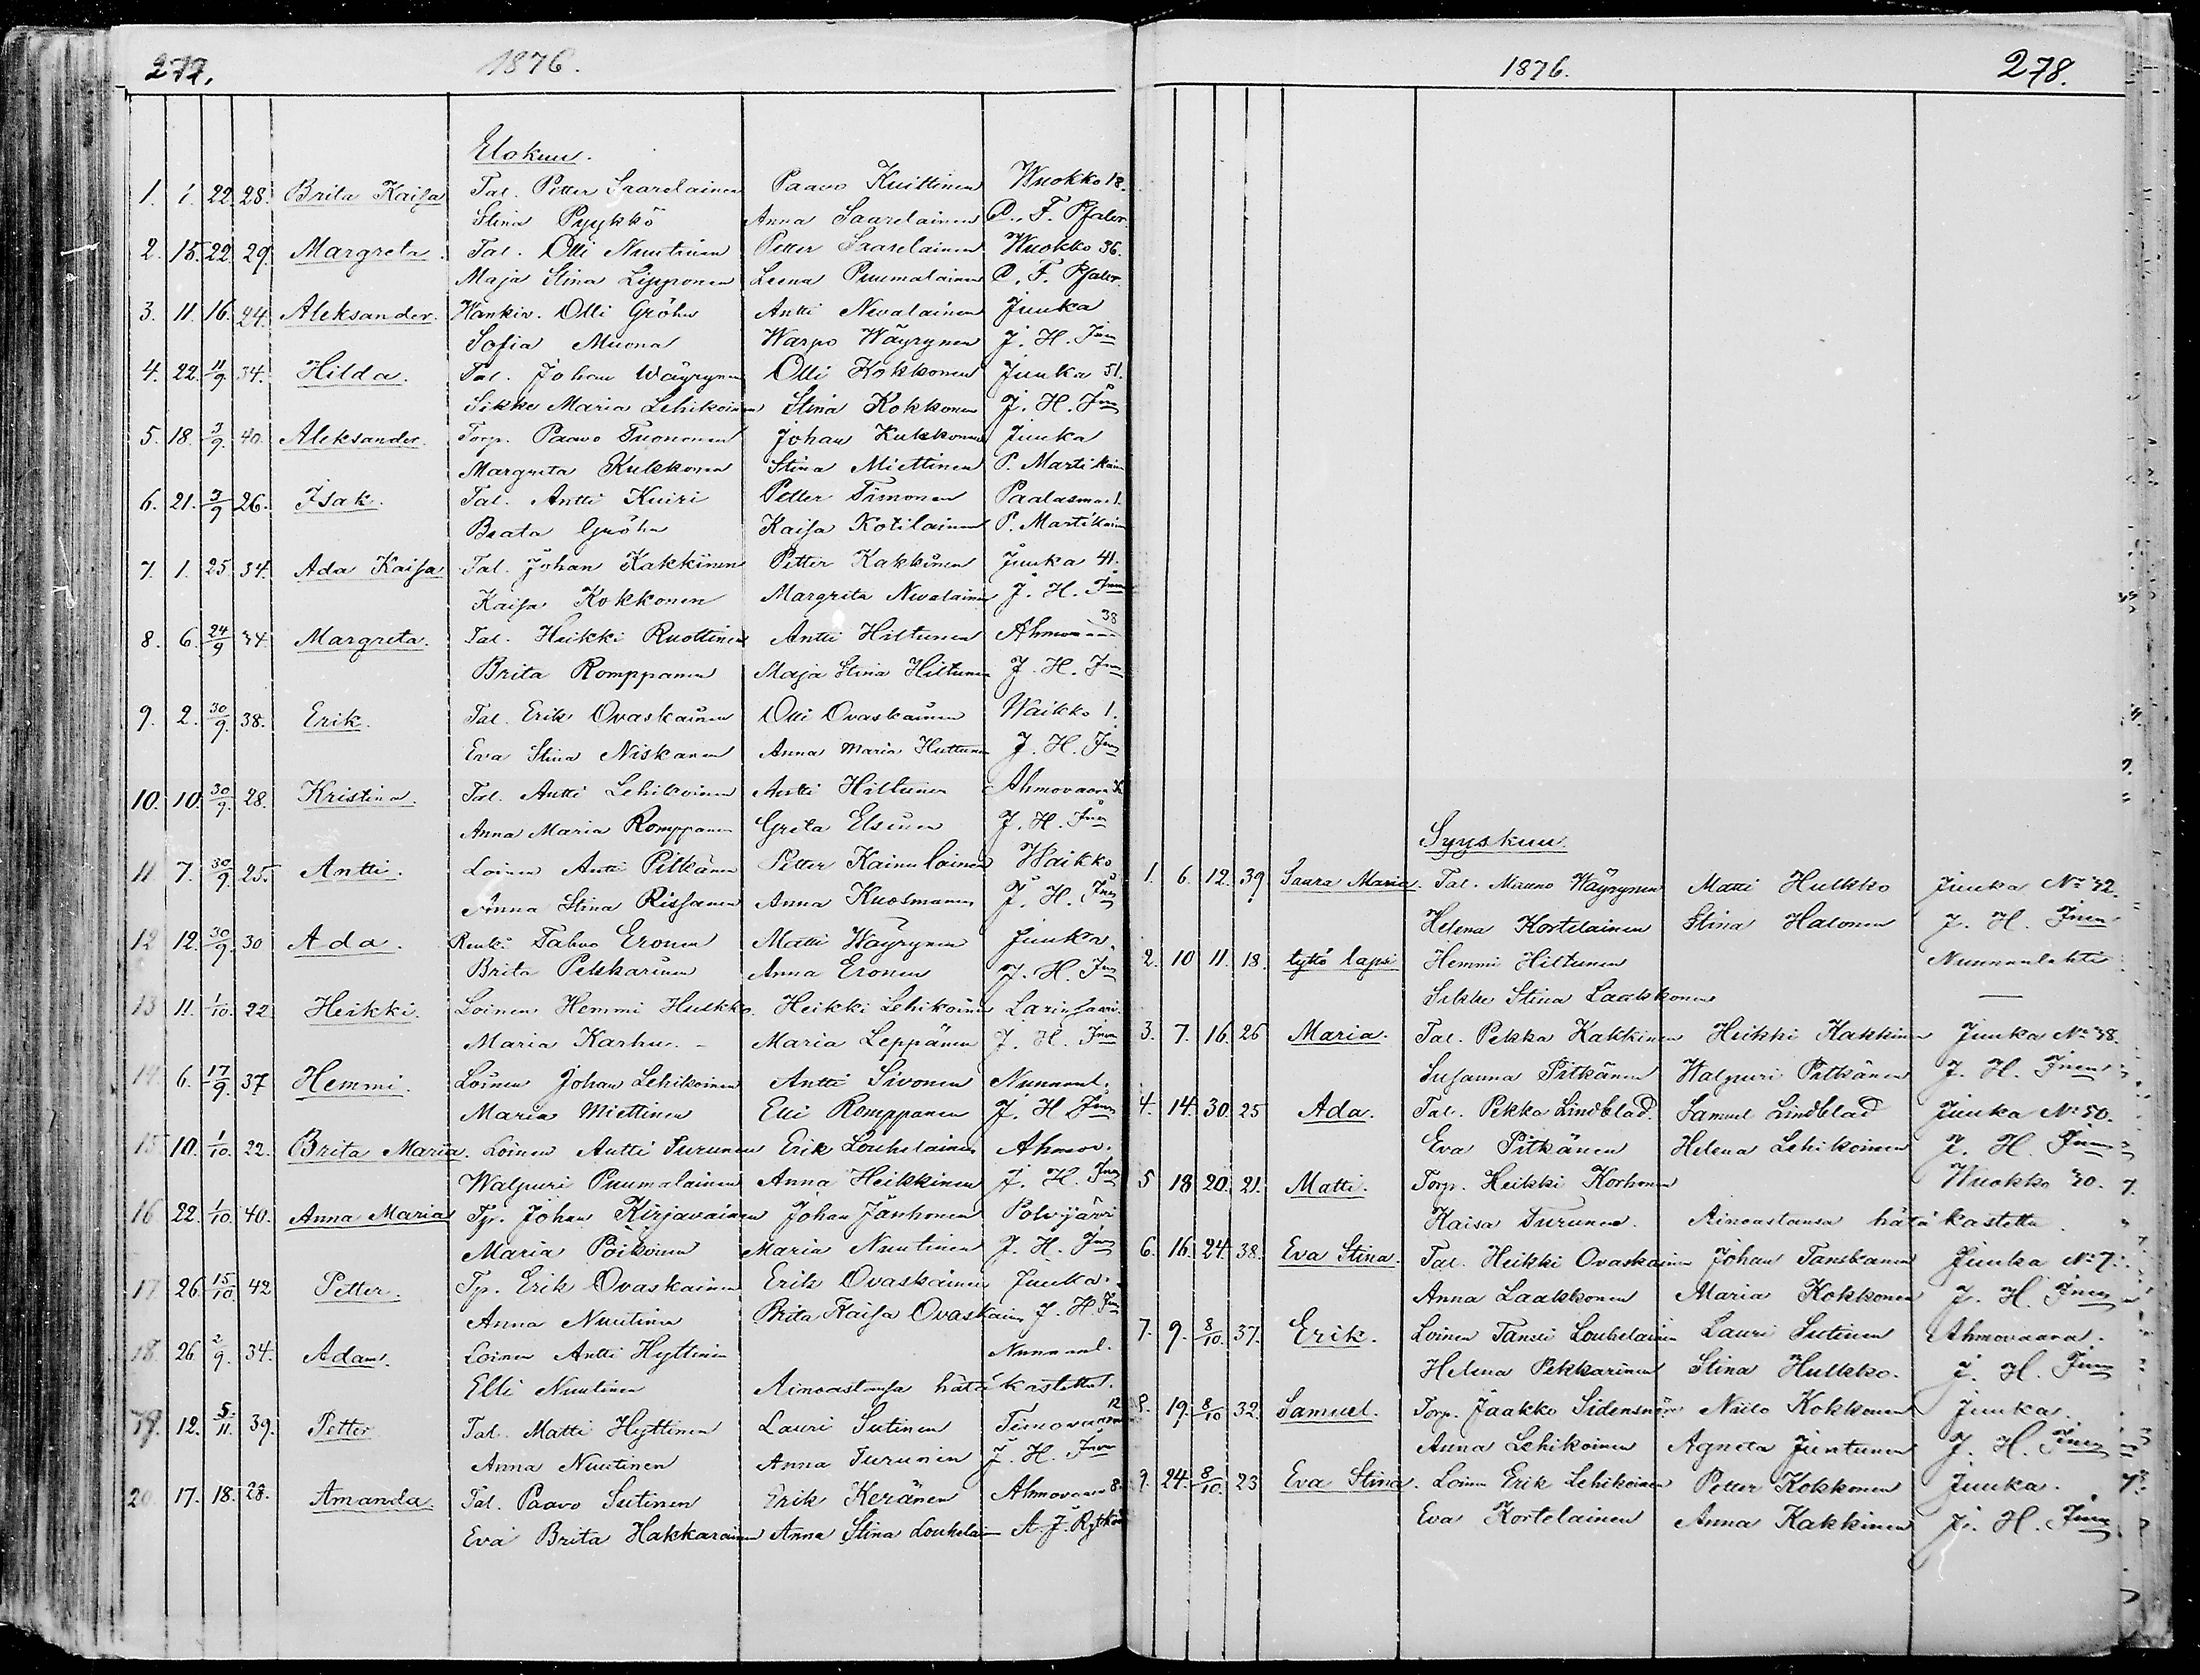 277. 1876.
Elokuu.
1. 1. 22. 28. Brita Kaisa Tal. Petter Saarelainen Paavo Kuittinen Wuokko 18.
Stina Pyykkö Anna Saarelainen O. F. Pfaler.
2. 15. 22. 29. Margreta. Tal. Olli Nuutinen Petter Saarelainen Wuokko 36.
Maja Stina Lipponen Leena Puumalainen O. F. Pfaler.
3. 11. 16. 44. Aleksander. Olli Gröhn Antti Nevalainen Juuka
Sofia Muona Warpo Wäyrynen J. H. Jnen
4. 22. 11/9. 34. Hilda. Tal. Johan Wäyrynen Olli Kokkonen Juuka 51.
Sikke Maria Lehikoinen Stina Kokkonen J. H. Jnen
5. 18. 3/9. 40. Aleksander. Torp. Paavo Tuononen Johan Kukkonen Juuka
Margreta Kukkonen Stina Miettinen P. Martikain
6. 21. 3/9 26. Isak. Tal. Antti Kuiri Petter Timonen Paalasmaa 1.
Beata Gröhn Kaisa Kotilainen P. Martikain
7. 1. 25 34. Ada Kaisa Tal. Johan Kakkinen Petter Kakkinen Juuka 41.
Kaisa Kokkonen Margreta Nevalainen J. H. Jnen
8. 6. 24/9 34. Margreta. Tal. Heikki Ruottinen Antti Hiltunen Ahmovaara 38
Brita Romppanen Maja Stina Hiltunen J. H. Jnen
9. 2. 30/9. 38. Erik. Tal. Erik Ovaskainen Olli Ovaskainen Waikko 1.
Eva Stina Niskanen Anna Maria Huttunen J. H. Jnen
10. 10. 30/9. 28. Kristina. Tal. Antti Lehikoinen Antti Hiltunen Ahmovaara
Anna Maria Romppanen Greta Elsinen J. H. Jnen
11 7. 30/9. 25. Antti. Loinen Antti Pitkänen Petter Kainulainen Waikko
Anna Stina Rissanen Anna Kuosmanen J. H. Jnen
12 12. 30/9. 30 Ada. Renki Tahvo Eronen Matti Wäyrynen Juuka.
Brita Pekkarinen Anna Eronen J. H. Jnen
13 11. 1/10. 22 Heikki. Loinen Hemmi Hulkko. Heikki Lehikoinen Larinsaari.
Maria Karhu. - Maria Leppänen J. H. Jnen
14. 6. 17/9. 37 Hemmi. Loinen Johan Lehikoinen Antti Sivonen Nunnanl.
Maria Miettinen Elli Romppanen J. H Jnen
15 10. 1/10. 22. Brita Maria. Loinen Antti Turunen Erik Louhelainen Ahmov.
Walpuri Puumalainen Anna Heikkinen J. H. Jnen
16 22. 1/10. 40. Anna Maria Tp. Johan Kirjavainen Johan Jänhonen Polvijärvi
Maria Poikonen Maria Nuutinen J. H. Jnen
17 26. 15/10. 42 Petter. Tp. Erik Ovaskainen Erik Ovaskainen Juuka.
Anna Nuutinen Brita Kaisa Ovaskain J. H Jnen
18. 26. 2/9. 34. Adam. Loinen Antti Hyttinen Nunnanl.
Elli Nuutinen Ainoastansa hätäkastettu.
19. 12. 5/11. 39. Petter Tal. Matti Hyttinen Lauri Sutinen Timovaara 12
Anna Nuutinen Anna Turunen J. H. Jnen
20. 17. 18. 28. Amanda. Tal. Paavo Sutinen Erik Keränen Ahmovaara 8.
Eva Brita Hakkarainen Anna Stina Louhelain A. J. Rytkön
1876. 278.
Syyskuu.
1. 6. 12. 39 Saara Maria. Tal. Mauno Wäyrynen Matti Hulkko Juuka No 32.
Helena Kortelainen Stina Halonen J. H. Jnen
2. 10 11. 18. tyttö lapsi Hemmi Hiltunen Nunnanlahti
Silkke Stina Laakkonen —
3. 7. 16. 26 Maria. Tal. Pekka Kakkinen Heikki Kakkinen Juuka No 38.
Susanna Pitkänen Walpuri Pitkänen J. H. Jnen
4. 14. 30. 25 Ada. Tal. Pekka Lindblad. Samuel Lindblad Juuka No 50.
Eva Pitkänen Helena Lehikoinen J. H. Jnen
5 18 20. 21. Matti. Torp. Heikki Korhonen Wuokko 30.
Kaisa Turunen. Ainoastansa hätä kastettu.
6. 16. 24. 38. Eva Stina. Tal. Heikki Ovaskainen Johan Tanskanen Juuka No 7.
Anna Laakkonen Maria Kokkonen J. H. Jnen
7. 9. 8/10. 37. Erik. Loinen Taneli Louhelainen Lauri Sutinen Ahmovaara.
Helena Pekkarinen Stina Hulkko. J. H. Jnen
8. 19. 8/10 32. Samuel. Torp. Jaakko Sidensnöre Niilo Kokkonen Juuka.
Anna Lehikoinen Agneta Juntunen J. H. Jnen
9. 24. 8/10. 23 Eva Stina. Loinen Erik Lehikoinen Petter Kokkonen Juuka.
Eva Kortelainen Anna Kakkinen J. H. Jnen